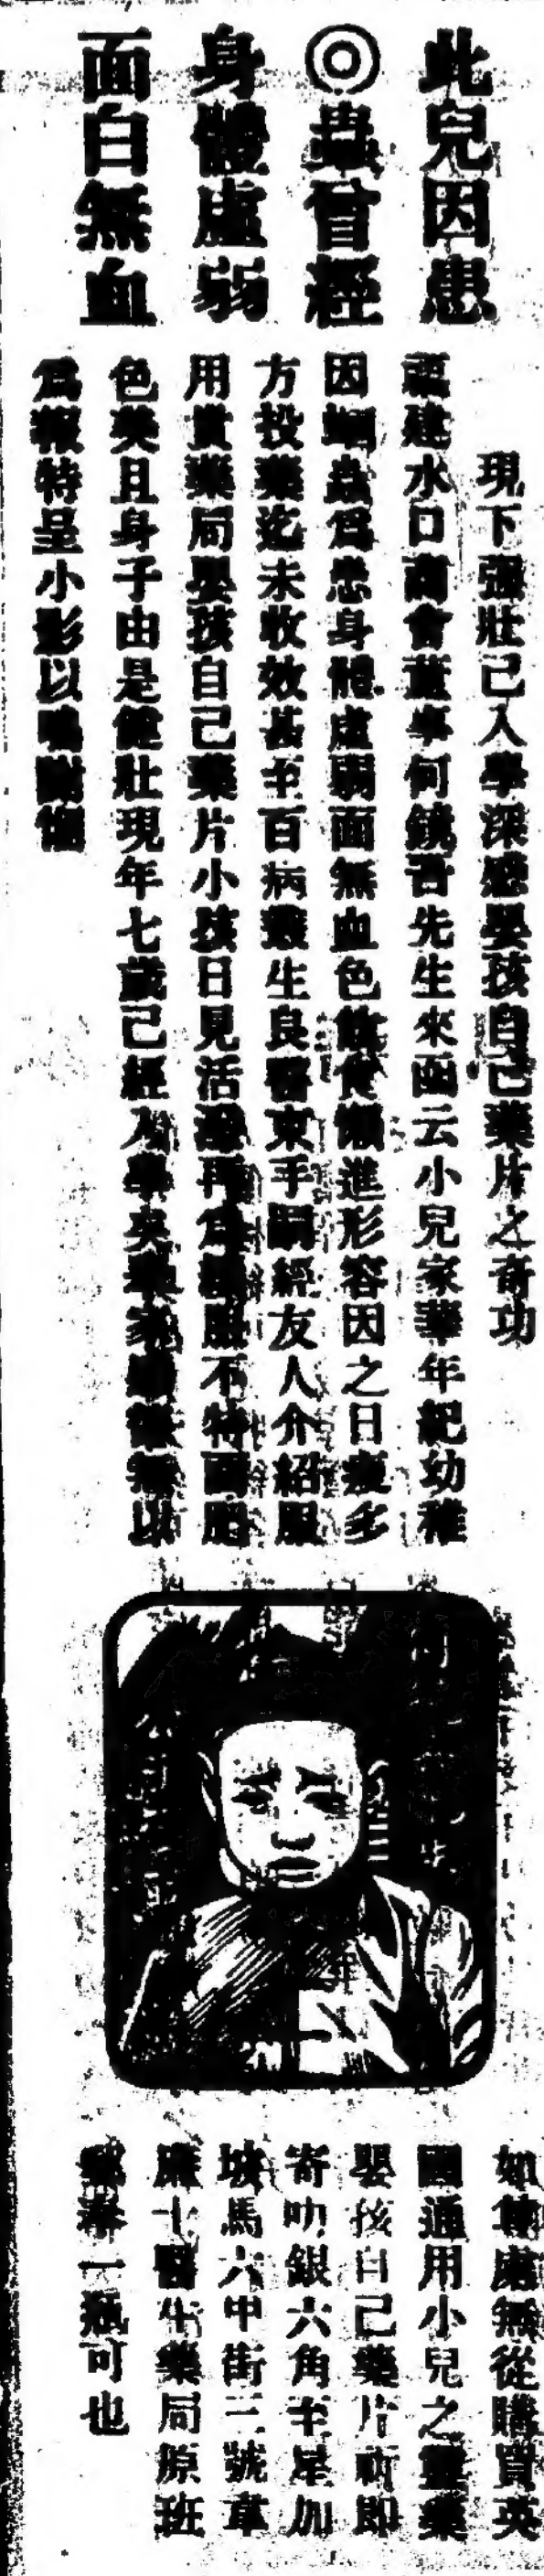 此兒因患
◎蟲曾經
身體虛弱
面白無血
現下强壯已入學深感嬰孩自己藥片之奇功
福建水口商會董事何鏡吾先生來函云小兒家華年紀幼稚
因蛔蟲為患身體虛弱面無血色飲食懶進形容因之日瘦多
方投藥迄未收效甚至百病叢生良醫束手嗣經友人介紹服
用貴藥局嬰孩自己藥片小孩日見活潑再為服不特面
色美且身子由是健壯現年七歲已經入學矣舉家無以
為報特呈小影以鳴謝悃
如尊處無從購買英
國通用小兒之靈藥
嬰孩自己藥片祈即
寄叻銀六角至星加
坡馬六甲街三號韋
廉士醫生藥局原班
郵奉一瓶可也